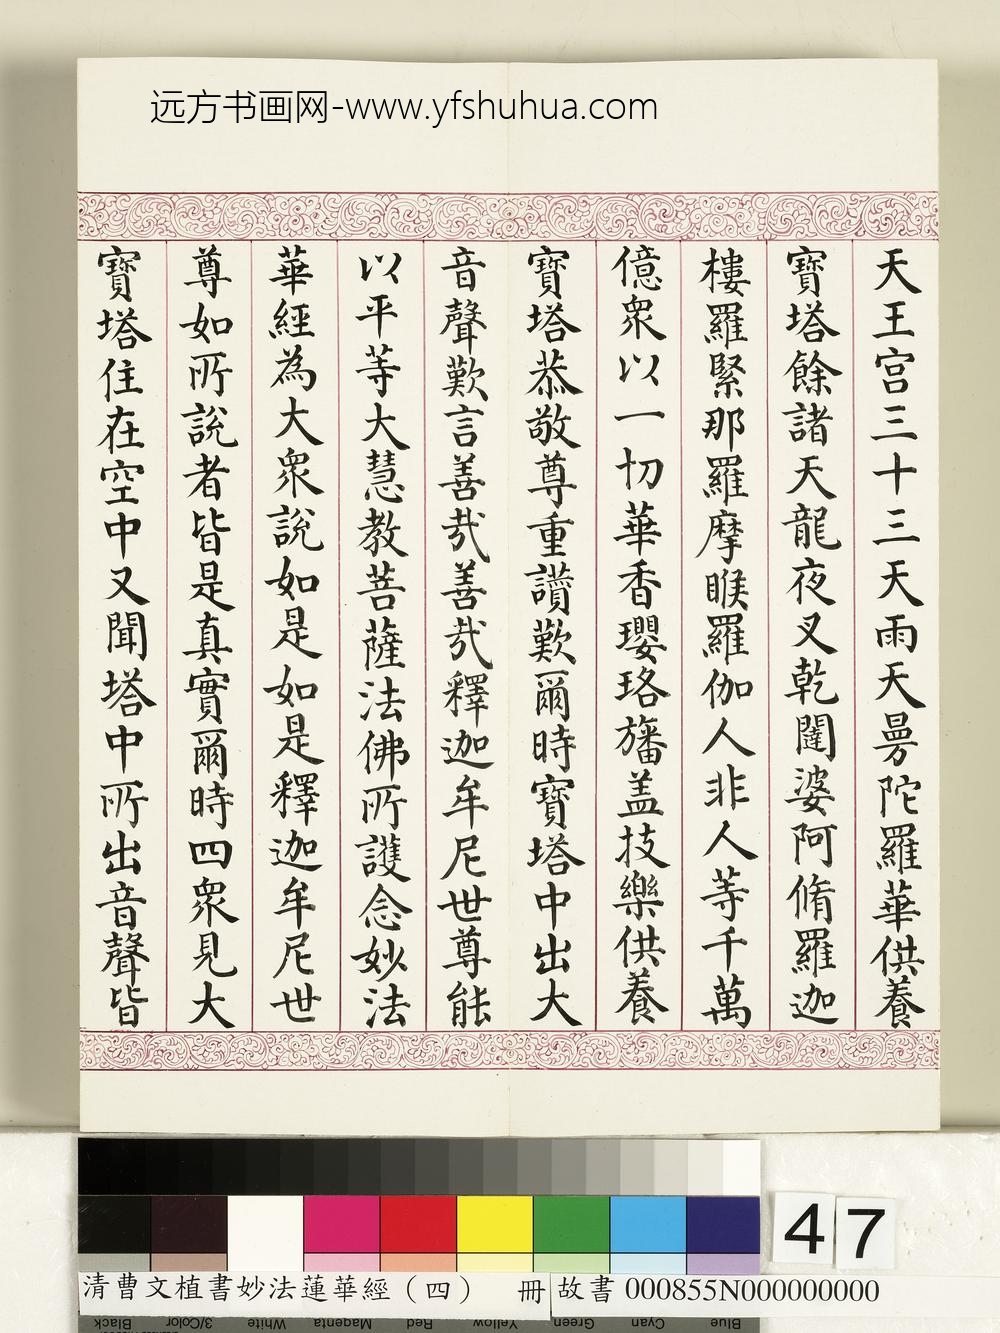 远方书画网-www.yfshuhua.com
天王宮三十三天雨天曼陀羅華供養
寶塔餘諸天龍夜叉乾闥婆阿脩羅迦
樓羅緊那羅摩睺羅伽人非人等千萬
億眾以一切華香瓔珞旛盖技樂供養
寶塔恭敬尊重讚歎爾時寶塔中出大
音聲歎言善哉善哉釋迦牟尼世尊能
以平等大慧教菩薩法佛所護念妙法
華經為大眾說如是如是釋迦牟尼世
尊如所說者皆是真實爾時四眾見大
寶塔住在空中又聞塔中所出音聲皆
47
清曹文植書妙法蓮華經（四） 冊
故書 000855N000000000
Black 3/Color White Magenta Red Yellow Green Cyan Blue